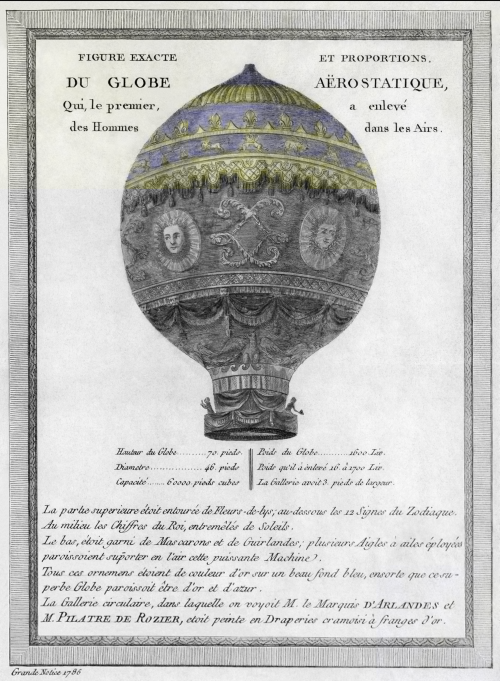 FIGURE EXACTE ET PROPORTIONS,
DU GLOBE AËROSTATIQUE,
Qui, le premier, a enlevé
des Hommes dans les Airs.
Hauteur du Globe..........70. pieds.
Diametre..................46. pieds
Capacité......60000 pieds cubes
Poids du Globe..........1600. Liv.
Poids qu'il à enlevé 16. à 1700 Liv.
La Gallerie avoit 3. pieds de largeur.
La partie superieure étoit entourée de Fleurs-de-lys; au-dessous les 12 Signes du Zodiaque.
Au milieu les Chiffres du Roi, entremêlés de Soleils.
Le bas, étoit garni de Mascarons et de Guirlandes; plusieurs Aigles à ailes éployées
paroissoient supôrter en l'air cette puissante Machine).
Tous ces ornemens étoient de couleur d'or sur un beau fond bleu, ensorte que ce su-
perbe Globe paroissoit être d'or et d'azur.
La Gallerie circulaire, dans laquelle on voyoit M. le Marquis D'ARLANDES et
M. PILATRE DE ROZIER, etoit peinte en Draperies cramoisi à franges d'or.
Grande Notice 1786